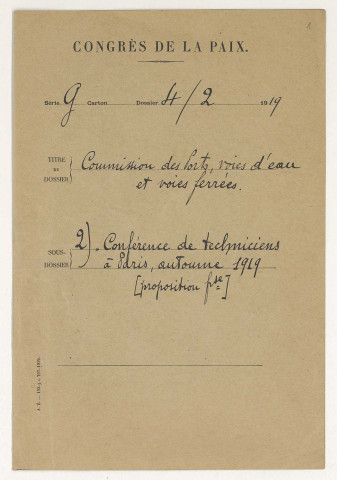 CONGRÈS DE LA PAIX.
Série G Carton Dossier 4/2 1919
TITRE DU DOSSIER } Commission des Ports, voies d'eau
et voies ferrées.
SOUS-DOSSIER } 2). Conférence de techniciens
à Paris, automne 1919
[proposition fse]